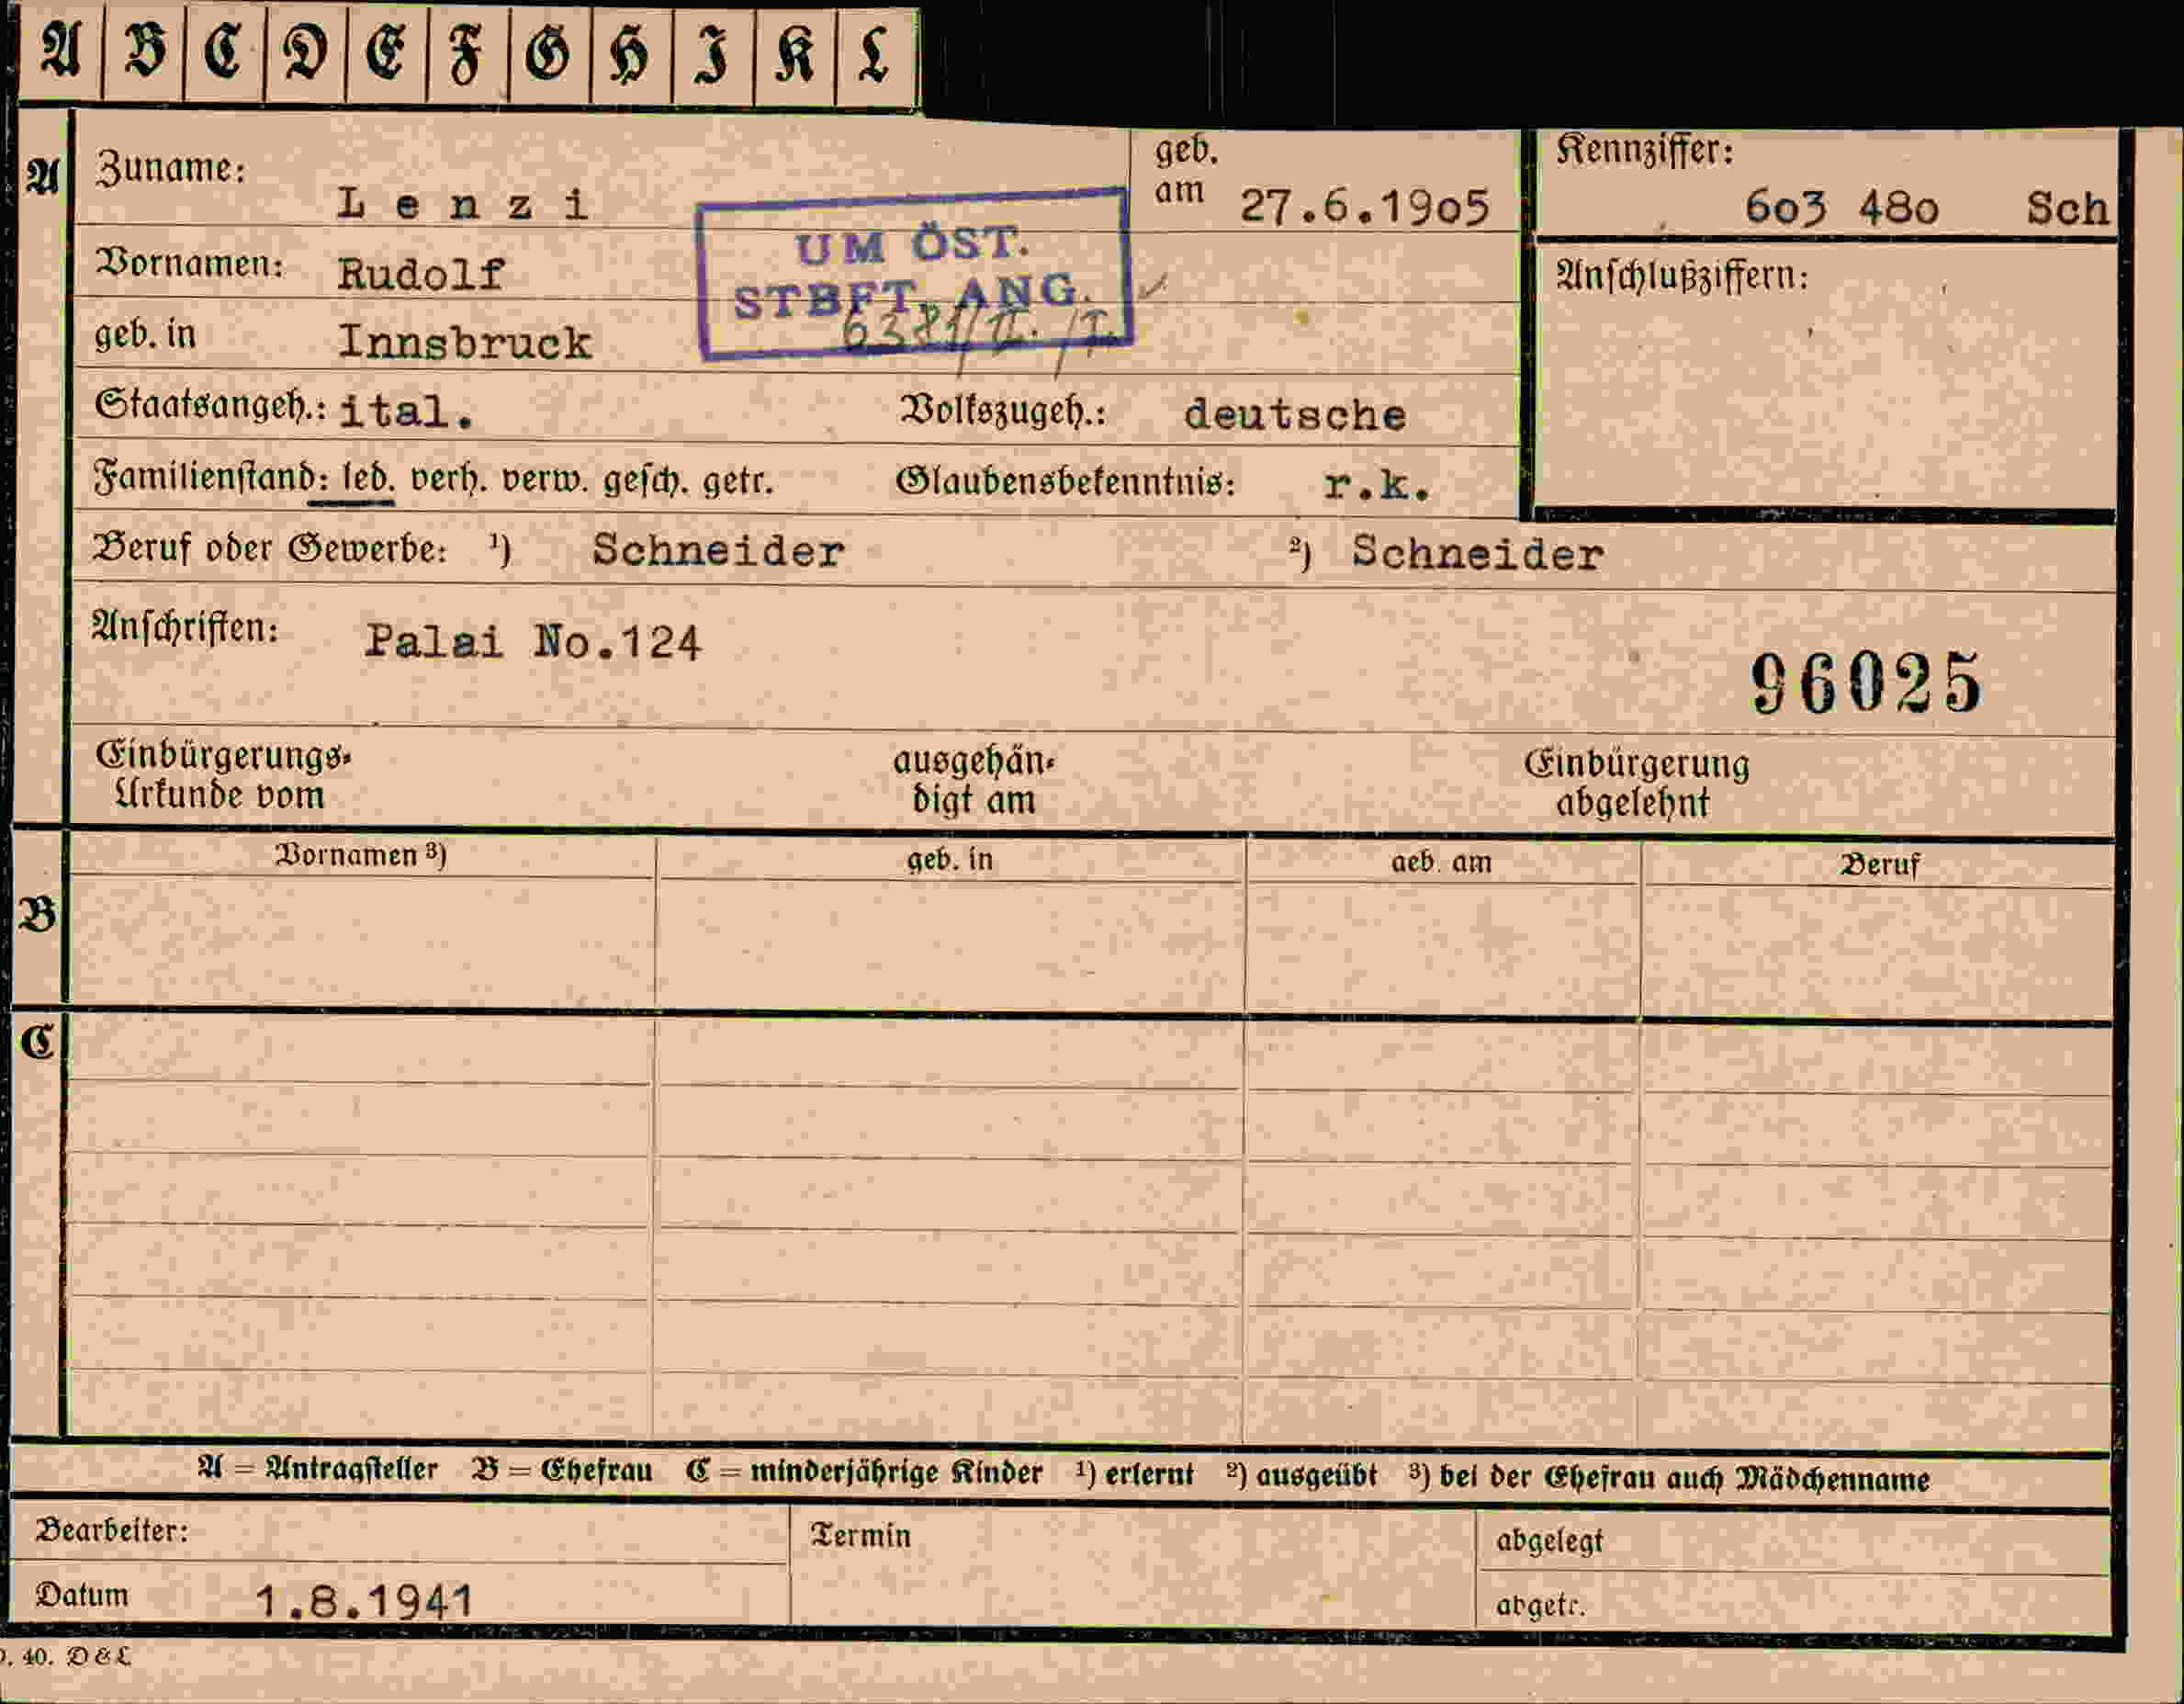 A B C D E F G H I K L
A Zuname: L e n z i geb. am 27.6.1905 Kennziffer: 603 480 Sch
UM ÖST.
STBFT. ANG.
Vornamen: Rudolf Anschlußziffern:
geb. in Innsbruck
Staatsangeh.: ital. Volkszugeh.: deutsche
Familienstand: led. verh. verw. gesch. getr. Glaubensbekenntnis: r.k.
Beruf oder Gewerbe: ¹) Schneider ²) Schneider
Anschriften: Palai No.124
96025
Einbürgerungs- ausgehän- Einbürgerung
Urkunde vom digt am abgelehnt
Vornamen ³) geb. in geb. am Beruf
B
C
A = Antragsteller B = Ehefrau C = minderjährige Kinder ¹) erlernt ²) ausgeübt ³) bei der Ehefrau auch Mädchenname
Bearbeiter: Termin abgelegt
Datum 1.8.1941 abgetr.
40. D & L